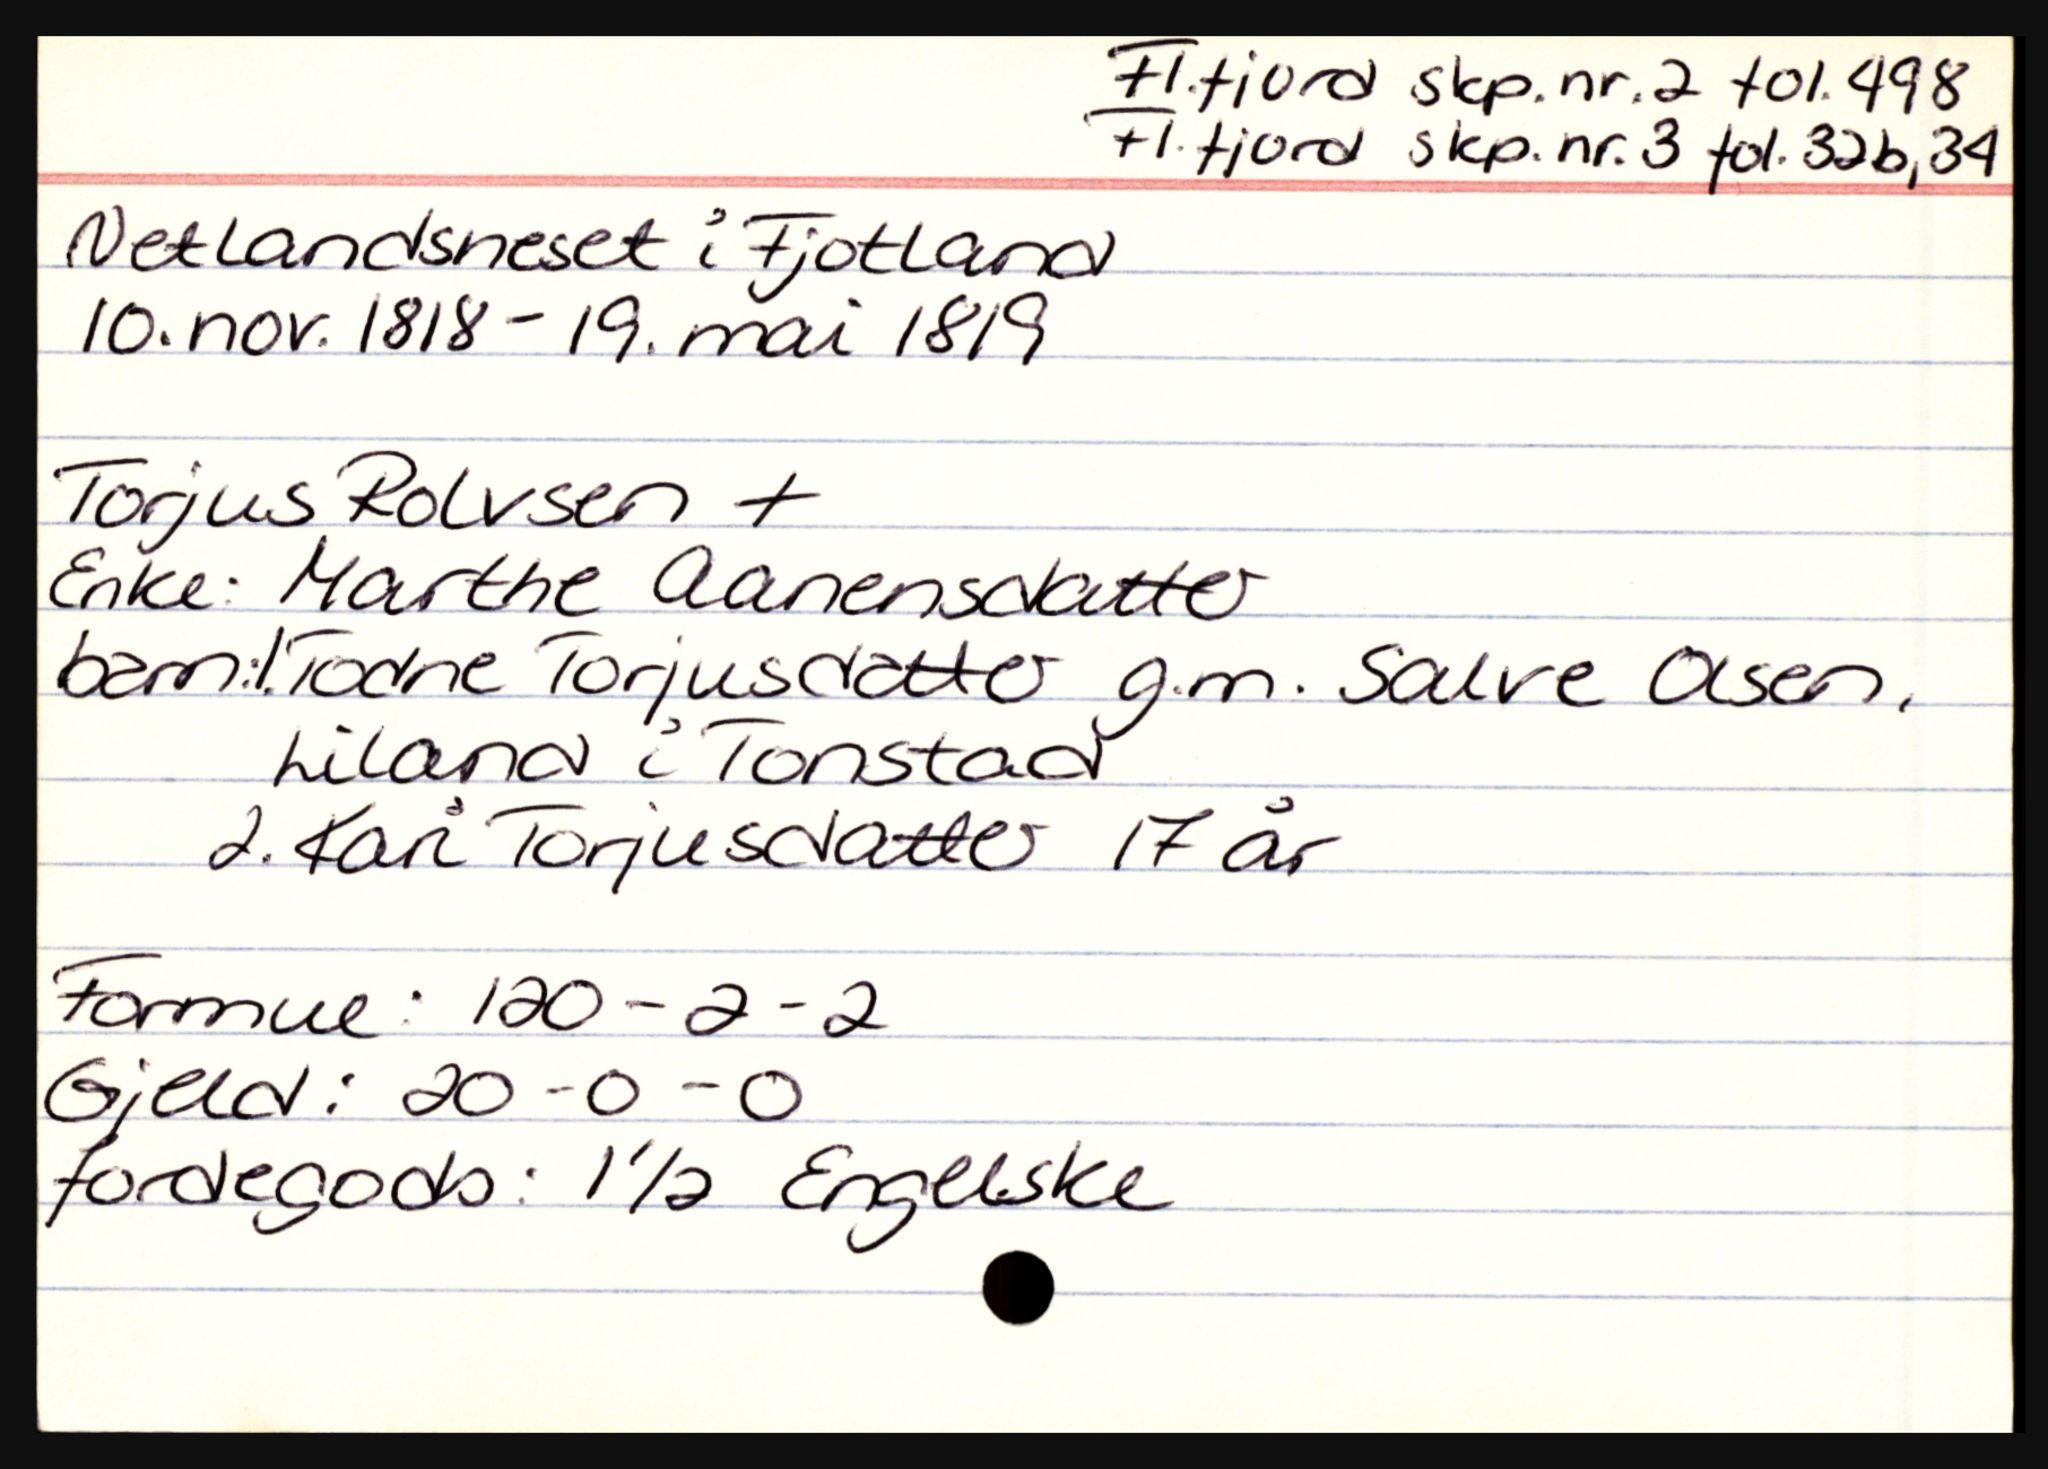 Fl.fjord skp.nr.2 fol.498
Fl.fjord skp.nr.3 fol.32b,34
Netlandsneset i Fjotland
10.nov.1818 - 19. mai 1819
Torjus Rolvsen +
Enke: Marthe Aanensdatter
barn:1.Todne Torjusdatter g.m. Salve Olsen,
Liland i Tonstad
2. Kari Torjusdatter 17 år
Formue: 120 - 2 - 2
Gjeld: 20 - 0 - 0
Jordegods: 1 1/2 Engelske